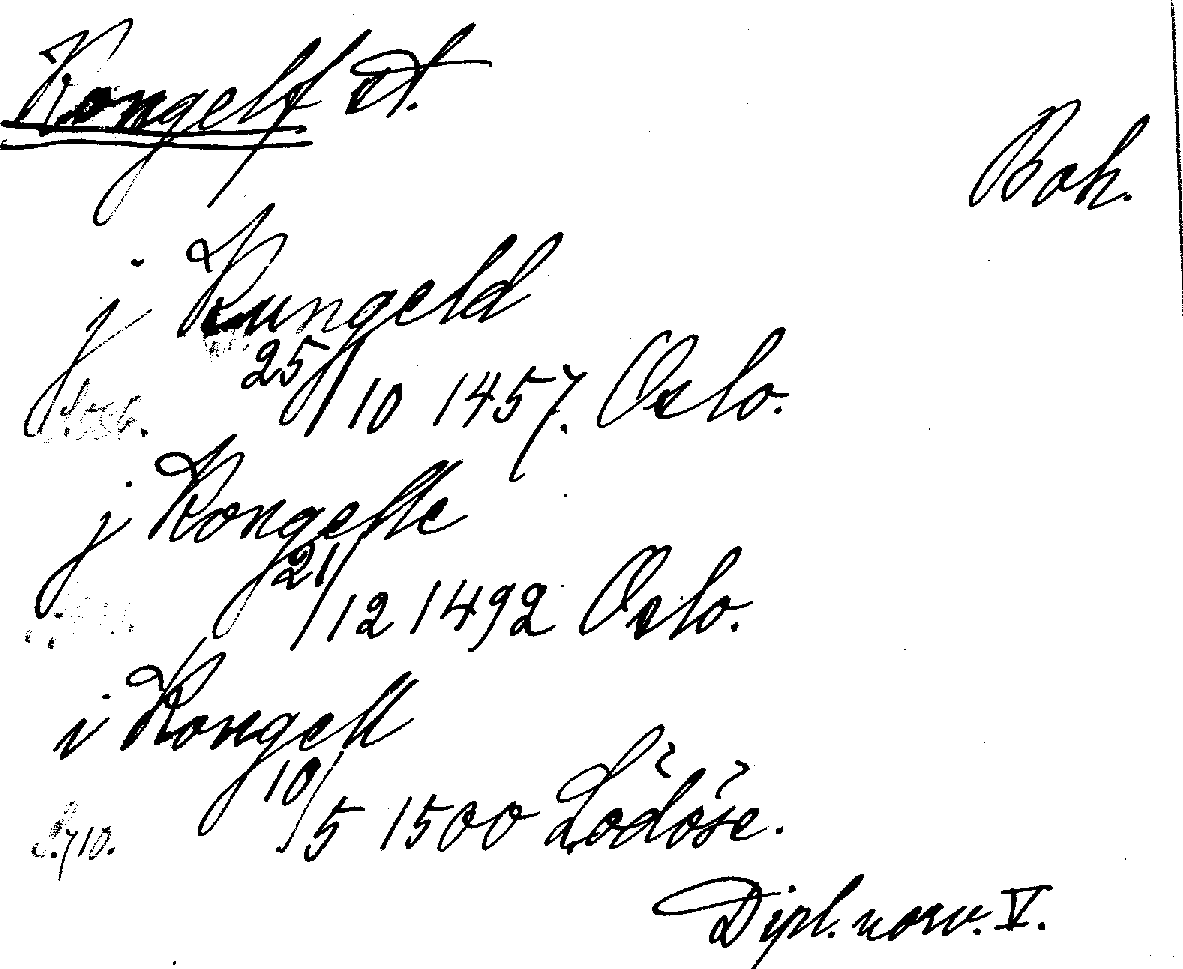 Kongelf st.
Boh.
j Kungeld
25/10 1457. Oslo.
j Kongelle
21/12 1492 Oslo.
i Kongell
10/5 1500 Lödöse.
S. 710.
Dipl. norv. V.